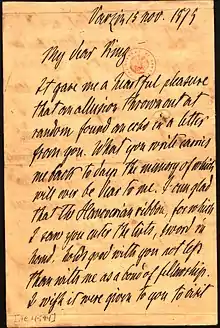 Varzin 15 nov. 1875
My dear King
It gave me a heartful pleasure
that an allusion thrown out at
random found an echo in a letter
from you. What you write carries
me back to days the memory of which
will ever be dear to me. I am glad
that the Hanoverian ribbon, for which
I saw you enter the lists, sword in
hand, holds good with you not less
than with me as a bond of fellowship.
I wish it were given to you to visit